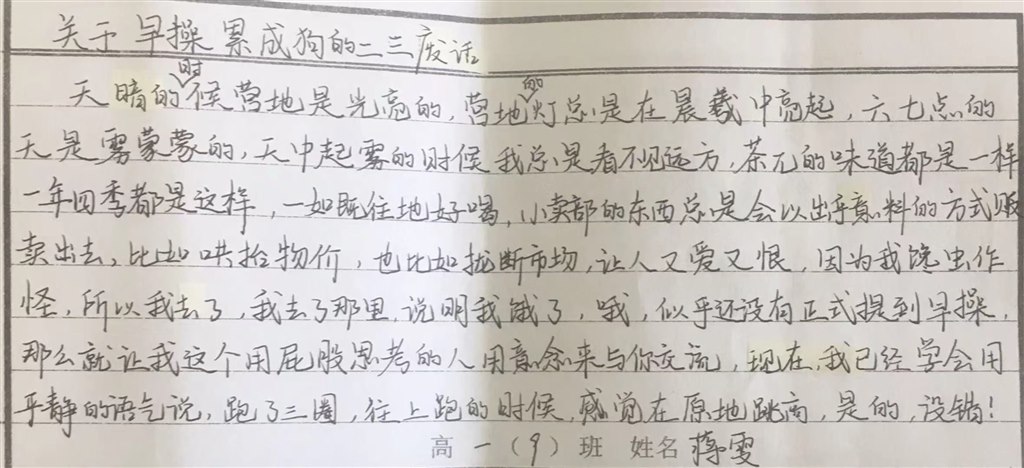 关于早操累成狗的二三废话
天暗的时候营地是光亮的，营地的灯总是在晨羲中亮起，六七点的
天是雾蒙蒙的，天中起雾的时候我总是看不见远方，茶几的味道都是一样
一年四季都是这样，一如既往地好喝，小卖部的东西总是会以出乎意料的方式贩
卖出去，比如哄抬物价，也比如拢断市场，让人又爱又恨，因为我馋虫作
怪，所以我去了，我去了那里，说明我饿了，哦，似乎还没有正式提到早操，
那么就让我这个用屁股思考的人用意念来与你交流，现在，我已经学会用
平静的语气说，跑了三圈，往上跑的时候，感觉在原地跳高，是的，没错！
高一（9）班 姓名 蒋雯